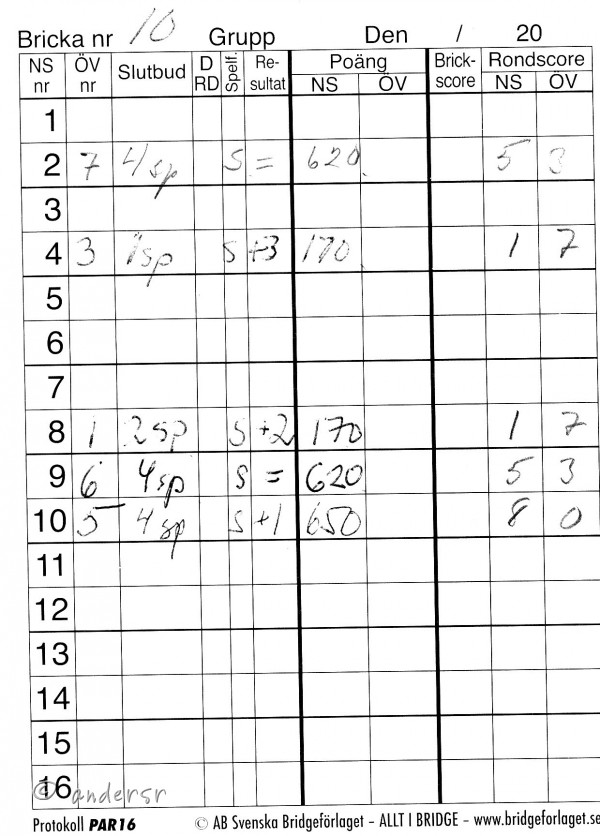 Bricka nr 10 Grupp Den / 20
NS nr ÖV nr Slutbud D RD Spelf. Re-sultat Poäng NS ÖV Brick-score Rondscore NS ÖV
1
2 7 4sp S = 620 5 3
3
4 3 1sp S +3 170 1 7
5
6
7
8 1 2sp S +2 170 1 7
9 6 4sp S = 620 5 3
10 5 4sp S +1 650 8 0
11
12
13
14
15
16
© andersr
Protokoll PAR16 © AB Svenska Bridgeförlaget – ALLT I BRIDGE – www.bridgeforlaget.se